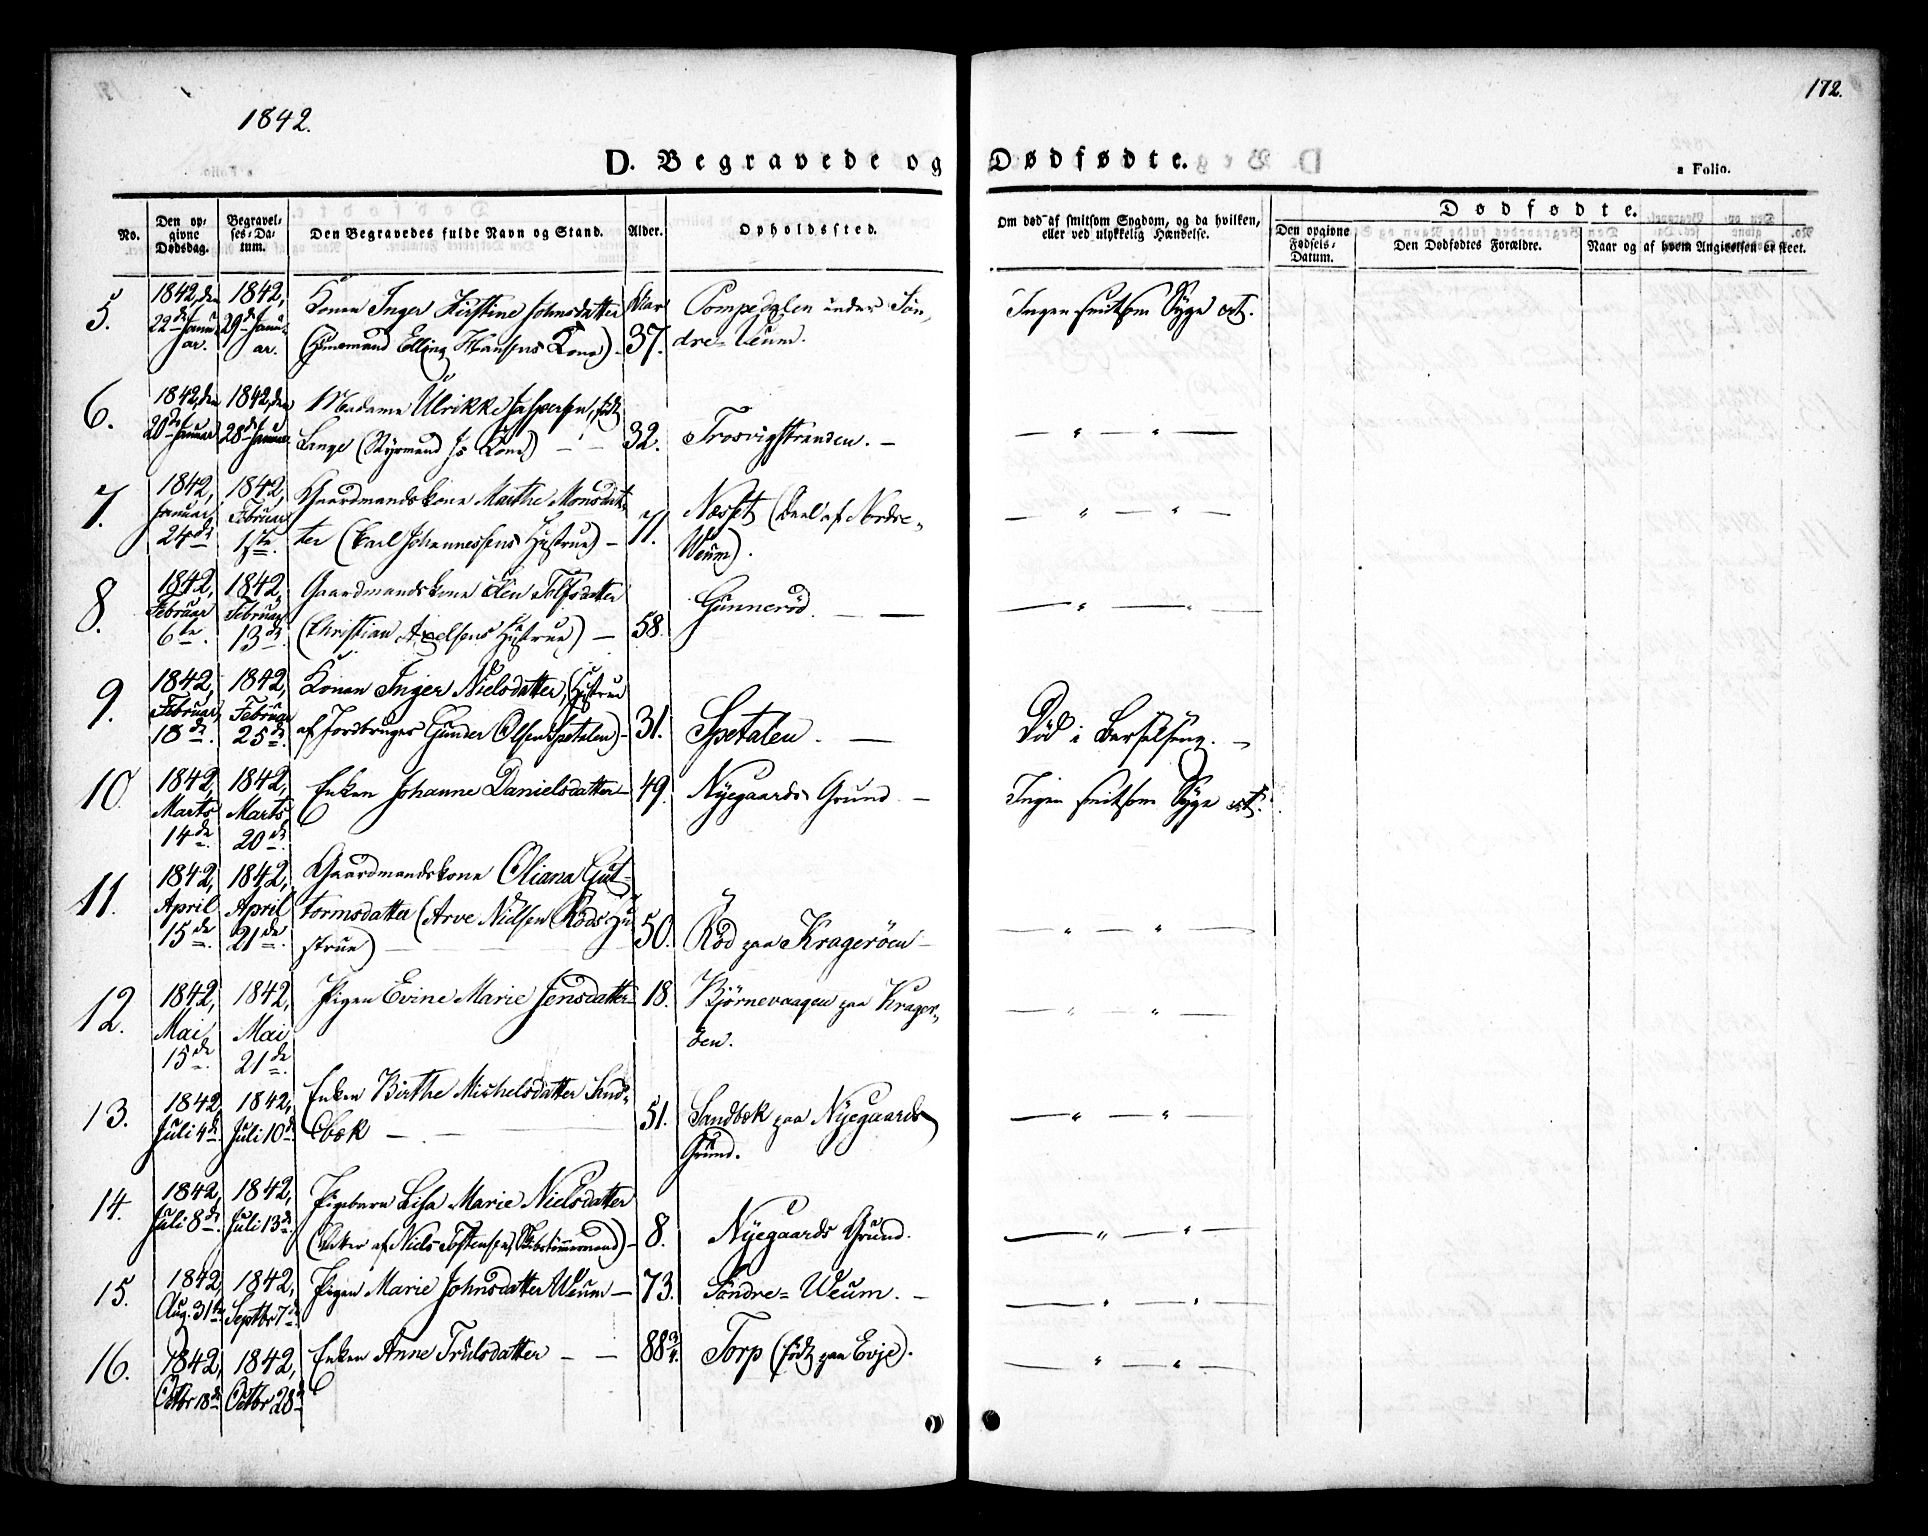 1842.
172.
D. Begravede og Dødfødte.
a Folio.
No.
Den op-
givne
Dødsdag.
Begravel-
ses-Da-
tum.
Den Begravedes fulde Navn og Stand.
Alder.
Opholdssted.
Om død af smitsom Sygdom, og da hvilken,
eller ved ulykkelig Hændelse.
Dødfødte.
Den opgivne
Fødsels-
Datum.
Den Dødfødtes Forældre.
Naar og af hvem Angivelsen er skeet.
5.
1842, den
22de Janu-
ar.
1842,
29de Janu-
ar.
Konen Inger Kirstine Johnsdatter
(Huusmand Elling Hansens Kone)
Aar
37.
under Søn-
dre-Veum.
Ingen smitsom Syge
6.
1842, den
20de Januar
1842, den
28de Januar
Madame Ulrikke Jespersen, født
Lange (Styrmand Js Kone) — —
32.
Trosvigstranden. —
— " — " —
7.
1842,
Januar
24de
1842,
Februar
1ste.
Gaardmandskone Marthe Monsdat-
ter (Carl Johannessens Hustrue) —
71.
Næsset (Deel af Nordre-
Weum).
— " — " —
8.
1842,
Februar
6te.
1842,
Februar
13de.
Gaardmandskone Elen Tolfsdatter
(Christian Axelsens Hustrue) —
58.
Gunnerød. — —
— " — " —
9.
1842,
Februar,
18de.
1842,
Februar
25de.
Konen Inger Nielsdatter, (Hustrue
af Jordbruger Gunder Olsen Spetalen) —
31.
Spetalen. —
Død i Barselseng. —
10.
1842,
Marts
14de.
1842,
Marts
20de.
Enken Johanne Danielsdatter —
49.
Nyegaards Grund. —
Ingen smitsom Syge
11.
1842,
April
15de.
1842,
April
21de.
Gaardmandskone Oliana Gut-
tormsdatter (Arve Nielsen Røds Hu-
strue) —
50.
Rød paa Kragerøen —
— " — " —
12.
1842,
Mai
15de.
1842,
Mai
21de.
Pigen Evine Marie Jensdatter —
18.
Bjørnevaagen paa Krager-
øen.
— " — " —
13.
1842,
Juli 4de.
1842,
Juli 10de.
Enken Birthe Michelsdatter Sand-
bæk —
51.
Sandbæk paa Nyegaards
Grund.
— " — " —
14.
1842,
Juli 8de.
1842,
Juli 13de.
Pigebarn Lisa Marie Nielsdatter
(Datter af Niels Tostensen, Skibstømmermand) —
8.
Nyegaards Grund.
— " — " —
15.
1842,
Aug. 31te.
1842,
Septbr 7de.
Pigen Marie Johnsdatter Weum —
73.
Søndre-Weum. —
— " — " —
16.
1842,
Octbr 18de
1842,
Octbr 28de
Enken Anne Trulsdatter — —
88¾.
Torp (født paa Evje).
— " — " —